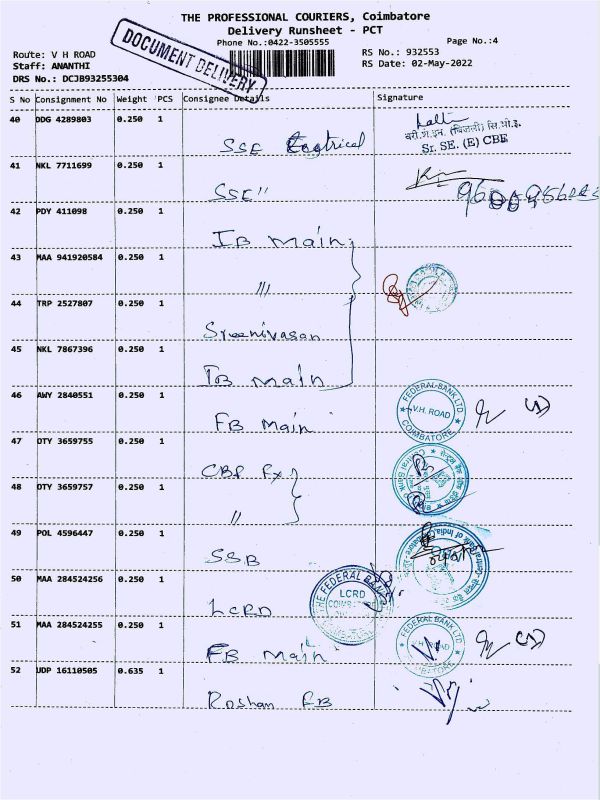 THE PROFESSIONAL COURIERS, Coimbatore
Delivery Runsheet - PCT
Phone No.:0422-3505555
Page No.:4
Route: V H ROAD
Staff: ANANTHI
DRS No.: DCJB93255304
DOCUMENT DELIVERY
RS No.: 932553
RS Date: 02-May-2022
S No Consignment No Weight PCS Consignee Details Signature
40 DDG 4289803 0.250 1
SSE Electrical
वरी.से.इन. (बिजली) सि.पो.इ.
Sr. SE. (E) CBE
41 NKL 7711699 0.250 1
SSE "
42 PDY 411098 0.250 1
IB main
43 MAA 941920584 0.250 1
"
44 TRP 2527807 0.250 1
Sreenivasan
45 NKL 7867396 0.250 1
IB main
46 AWY 2840551 0.250 1
FB Main
FEDERAL BANK LTD
V.H. ROAD
COIMBATORE
47 OTY 3659755 0.250 1
48 OTY 3659757 0.250 1
"
49 POL 4596447 0.250 1
SSB
Central Bank of India
50 MAA 284524256 0.250 1
LCRD
THE FEDERAL BANK
LCRD
51 MAA 284524255 0.250 1
FB Main
FEDERAL BANK LTD
V.H. ROAD
52 UDP 16110505 0.635 1
Roshan FB